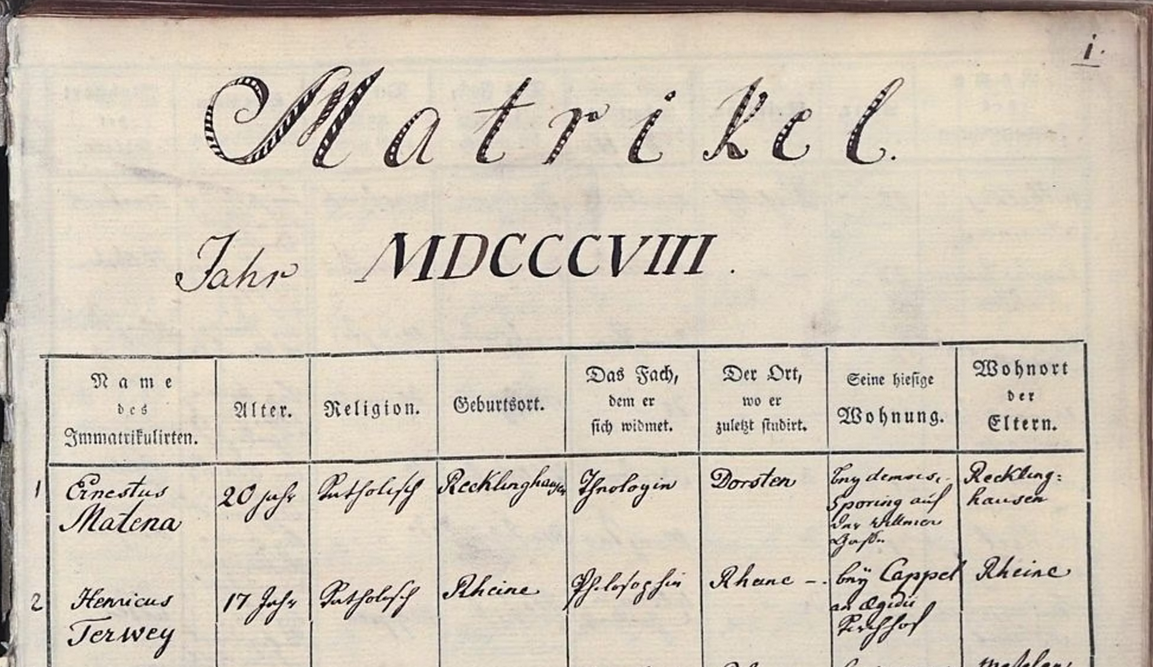 i.
Matrikel.
Jahr MDCCCVIII.
Name
des
Immatrikulirten.
Alter.
Religion.
Geburtsort.
Das Fach,
dem er
sich widmet.
Der Ort,
wo er
zuletzt studirt.
Seine hiesige
Wohnung.
Wohnort
der
Eltern.
1
Ernestus
Matena
20 Jahr
Katholisch
Recklinghausen
Theologie
Dorsten
bey demois.
Sporing auf
der
Reckling:
hausen
2
Henricus
Terwey
17 Jahr
Katholisch
Rheine
Philosophie
Rheine –.
bey Cappel
an Ægidii
Kirchhof
Rheine